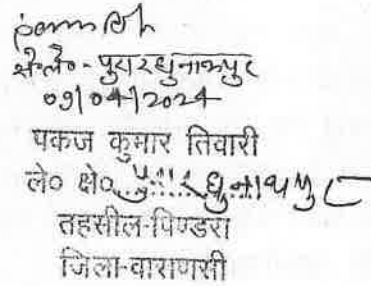 क्षे०ले० - पुरारघुनाथपुर
09/04/2024
पकज कुमार तिवारी
ले० क्षे० पु...रघुनाथपुर
तहसील-पिण्डरा
जिला-वाराणसी